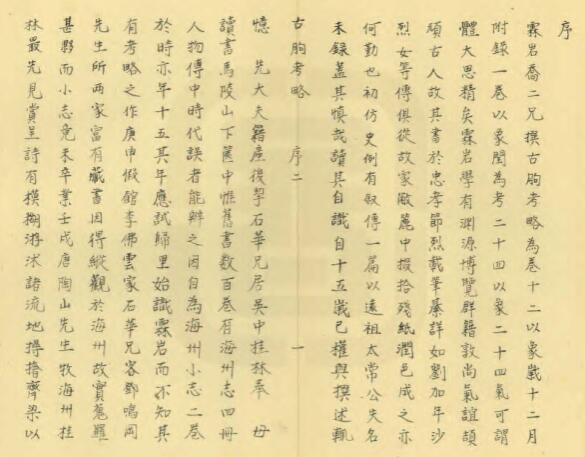 序
霖岩喬二兄撰古朐考略為卷十二以象歲十二月
附錄一卷以象閏為考二十四以象二十四氣可謂
體大思精矣霖岩學有淵源博覽群籍敦尚氣誼頡
頏古人故其書於忠孝節烈載筆彙詳如劉加年沙
烈女等傳俱從故家敝簏中掇拾殘紙潤色成之亦
何勤也初仿史例有叙傳一篇以遠祖太常公失名
未錄蓋其慎哉讀其自識自十五歲已權輿撰述輒
古朐考略 序二 一
憶 先大夫籍產後挈石華兄居吳中桂林奉 母
讀書馬陵山下篋中惟舊書数百卷有海州志四冊
人物傳中時代誤者能辨之因自為海州小志二卷
於時亦年十五其年應試歸里始識霖岩而不知其
有考略之作庚申假館李佛雲家石華兄客鄧鳴岡
先生所两家富有藏書因得縱觀於海州故實蒐羅
甚夥而小志竟未卒業壬戌唐陶山先生牧海州桂
林最先見賞呈詩有模糊游沭諸流地撏撦齊梁以